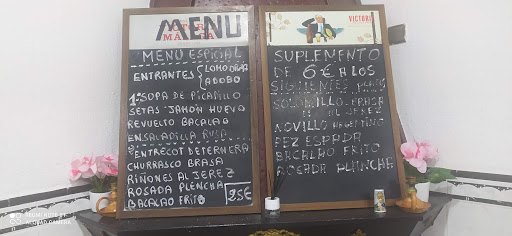 MENU
MENU ESPECIAL
ENTRANTES LOMO ORZA
ADOBO
1º SOPA DE PICADILLO
SETAS JAMÓN HUEVO
REVUELTO BACALAO
ENSALADILLA RUSA
2º ENTRECOT DE TERNERA
CHURRASCO BRASA
RIÑONES AL JEREZ
ROSADA PLENCHA
BACALAO FRITO
25€
VICTORIA
SUPLEMENTO
DE 6€ A LOS
SIGUIENTES PLATOS
SOLOMILLO BRASA
AL JEREZ
NOVILLO ARGENTINO
PEZ ESPADA
BACALAO FRITO
ROSADA PLANCHA